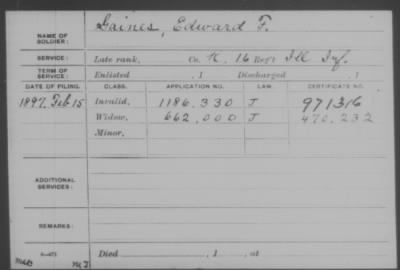 NAME OF SOLDIER: Gaines, Edward F.
SERVICE: Late rank, Co. K, 16 Reg't Ill Inf.
TERM OF SERVICE: Enlisted , 1 Discharged , 1
DATE OF FILING. CLASS. APPLICATION NO. LAW. CERTIFICATE NO.
1897. Feb 15 Invalid, 1186.330 J 971316
Widow, 662,000 J 470.232
Minor,
ADDITIONAL SERVICES:
REMARKS:
Died , 1 , at